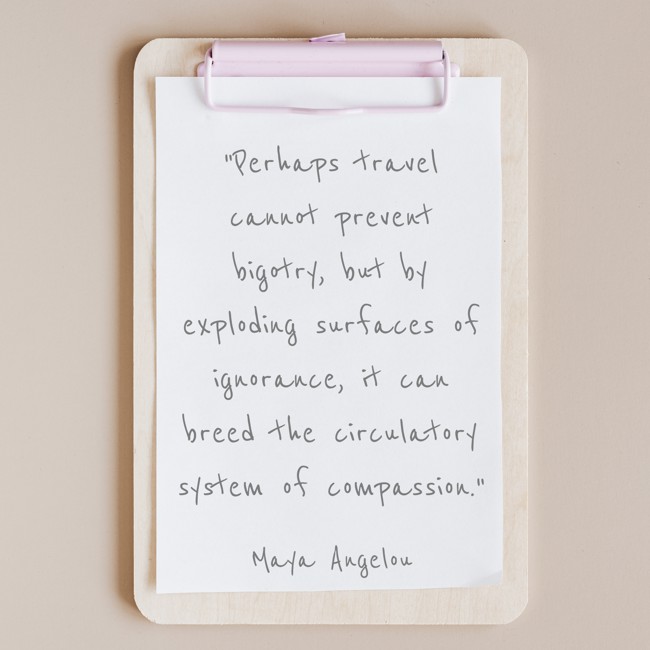 "Perhaps travel
cannot prevent
bigotry, but by
exploding surfaces of
ignorance, it can
breed the circulatory
system of compassion."
Maya Angelou